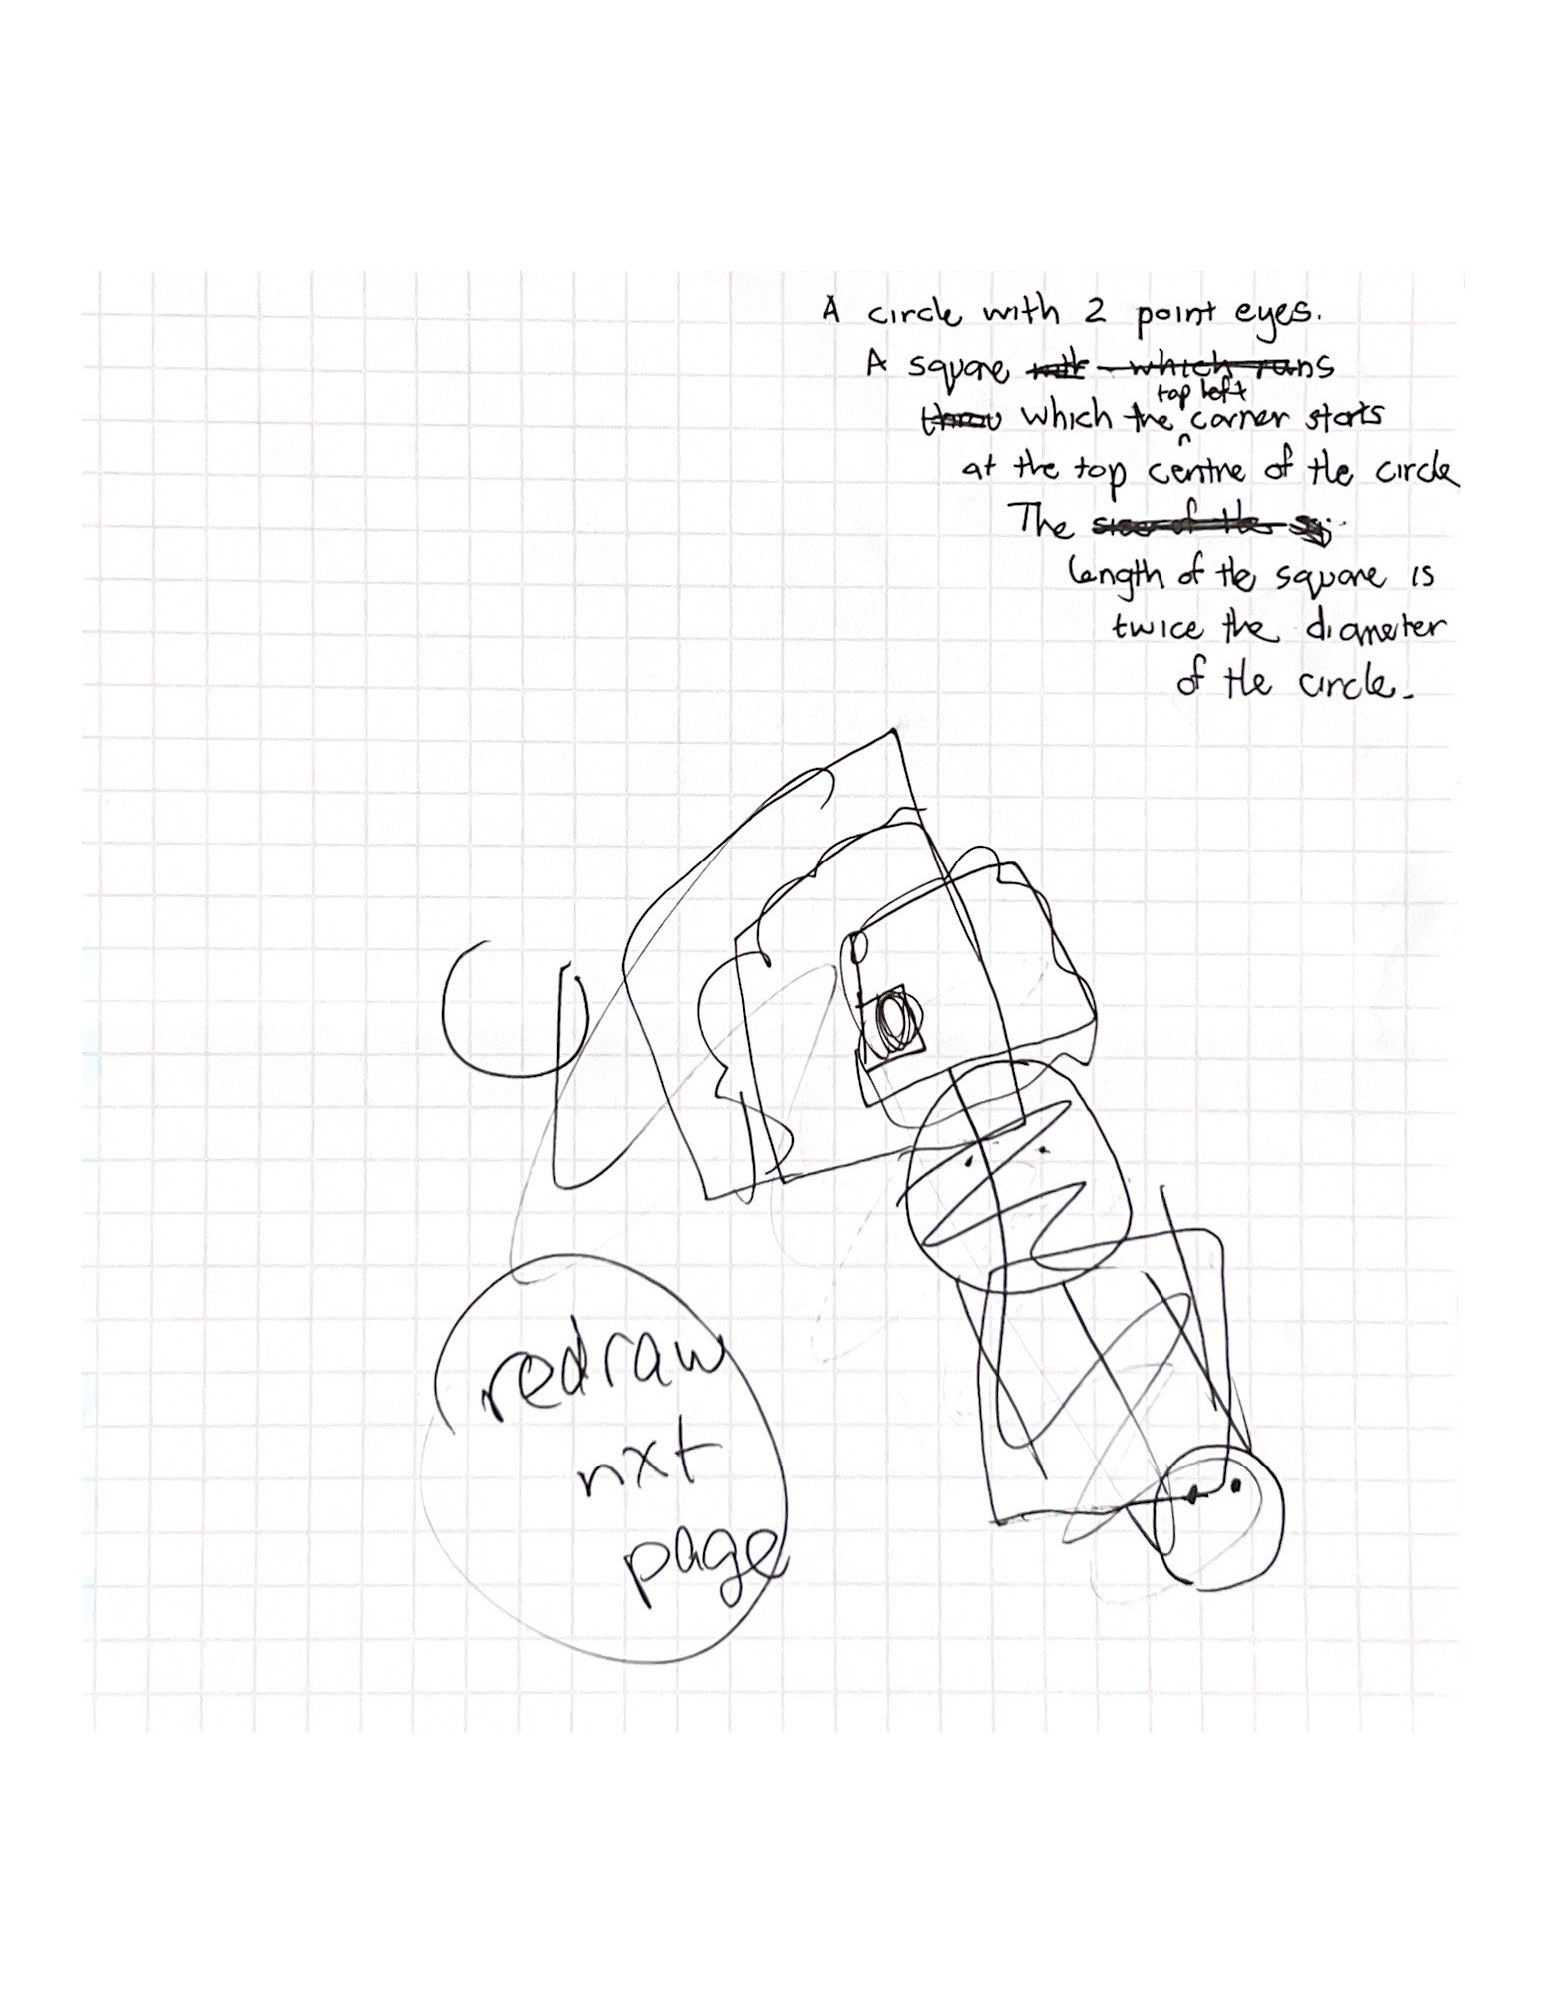 A circle with 2 point eyes.
A square which runs
top left
which the corner starts
at the top centre of the circle
The
length of the square is
twice the diameter
of the circle.
redraw
nxt
page